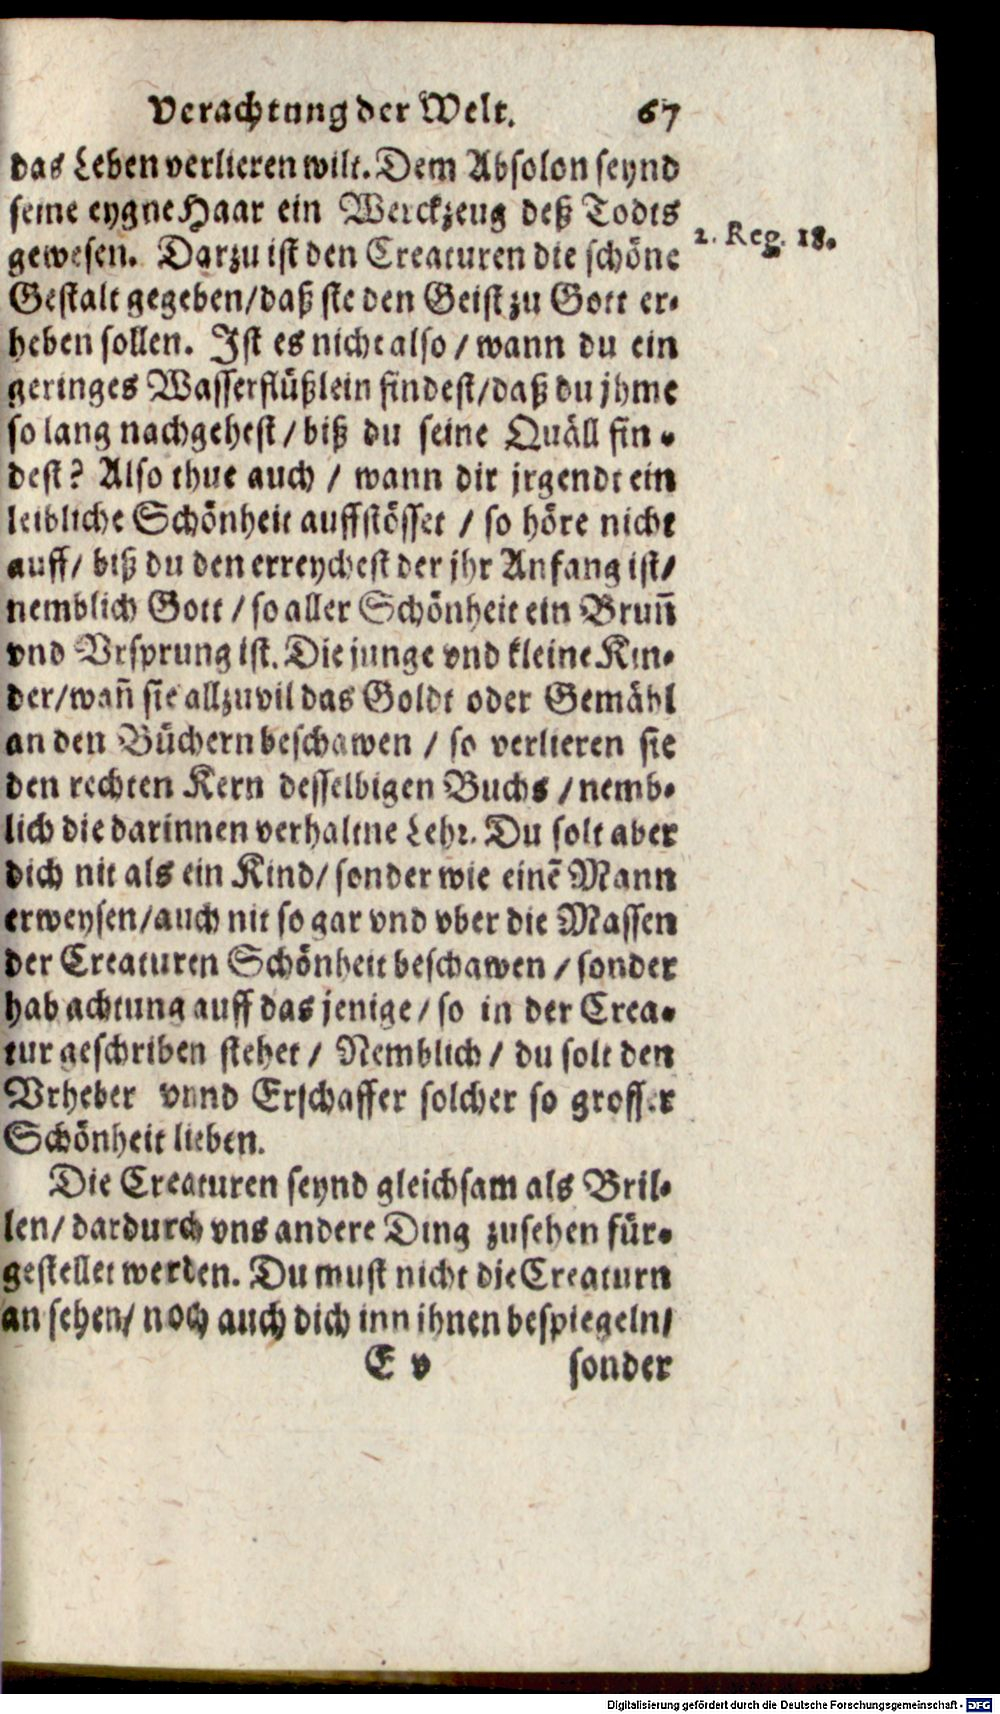 Verachtung der Welt. 67
das Leben verlieren wilt. Dem Absolon seynd
seine eygne Haar ein Werckzeug deß Todts
2. Reg. 18.
gewesen. Darzu ist den Creaturen die schöne
Gestalt gegeben/daß sie den Geist zu Gott er-
heben sollen. Ist es nicht also / wann du ein
geringes Wasserflüßlein findest/daß du jhme
so lang nachgehest / biß du seine Quäll fin-
dest? Also thue auch / wann dir jrgendt ein
leibliche Schönheit auffstösset / so höre nicht
auff/ biß du den erreychest der jhr Anfang ist/
nemblich Gott / so aller Schönheit ein Bruñ
vnd Vrsprung ist. Die junge vnd kleine Kin-
der/wañ sie allzuvil das Goldt oder Gemähl
an den Büchern beschawen / so verlieren sie
den rechten Kern desselbigen Buchs / nemb-
lich die darinnen verhaltne Lehr. Du solt aber
dich nit als ein Kind/ sonder wie einē Mann
erweysen/auch nit so gar vnd vber die Massen
der Creaturen Schönheit beschawen / sonder
hab achtung auff das jenige / so in der Crea-
tur geschriben stehet / Nemblich / du solt den
Vrheber vnnd Erschaffer solcher so grosser
Schönheit lieben.
Die Creaturen seynd gleichsam als Bril-
len/ dardurch vns andere Ding zusehen für-
gestellet werden. Du must nicht die Creaturn
an sehen/ noch auch dich inn ihnen bespiegeln/
E v sonder
Digitalisierung gefördert durch die Deutsche Forschungsgemeinschaft - DFG